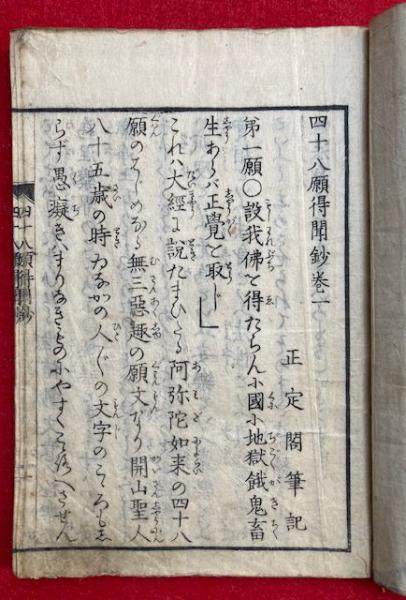 四十八願得聞鈔巻一
正定閣筆記
第一願〇設我佛を得たらんに國に地獄餓鬼畜
生あらバ正覺を取じ
これハ大經に説たまひたる阿弥陀如来の四十八
願のはじめなる無三惡趣の願文なり開山聖人
八十五歳の時ゐなかの人〴〵の文字のこゝろもし
らず愚癡きハまりなきものにやすくこゝろへさせん
四十八願得聞鈔